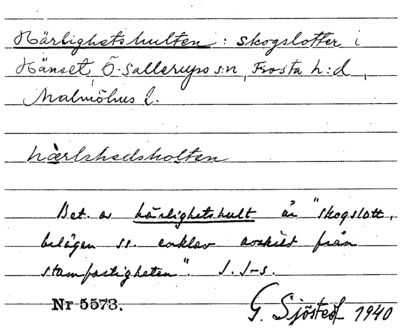 Härlighetshulten: skogslotter i
Hänset, Ö. Sallerups s:n, Frosta h:d,
Malmöhus l.
hærlshedsholten
Bet. av härlighetshult är "skogslott,
belägen ss. enklav avskild från
stamfastigheten". I. I-s.
Nr 5573.
G. Sjöstedt 1940